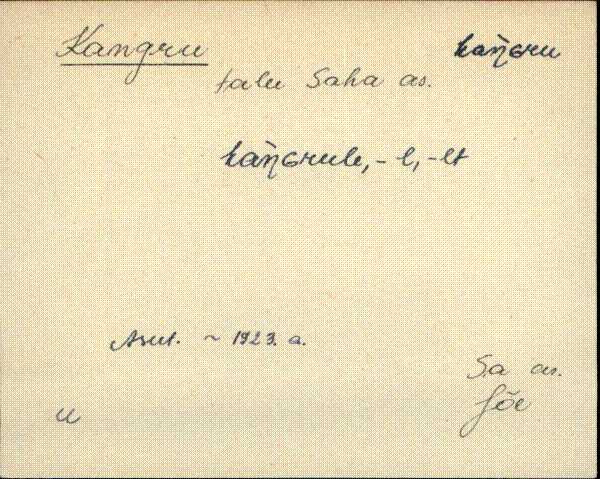 Kangru kaŋ̀Gru
talu Saha as.
kaŋ̀Grule, -l, -lt
Asut. ~ 1923. a.
Sa as.
Jõe
u